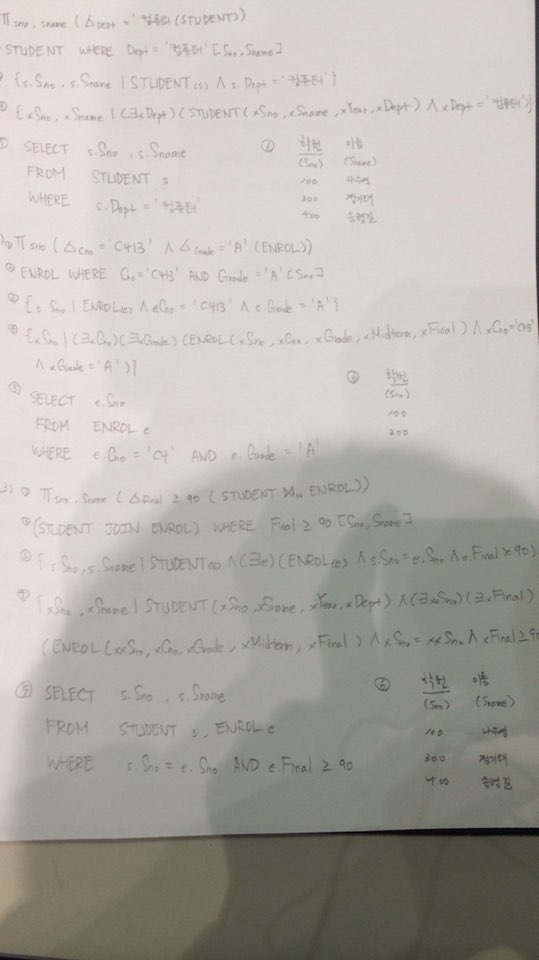 π sno, sname ( △ Dept = '컴퓨터 (STUDENT))
STUDENT WHERE Dept = '컴퓨터' [Sno, Sname]
{ s.Sno, s.Sname | STUDENT(s) ∧ s.Dept = '컴퓨터' }
④ { xSno, xSname | (∃xDept) (STUDENT (xSno, xSname, xYear, xDept) ∧ xDept = '컴퓨터')}
⑤ SELECT s.Sno, s.Sname
FROM STUDENT s
WHERE s.Dept = '컴퓨터'
⑥ 학번 이름
(Sno) (Sname)
100 나수영
300 정기태
400 송병길
① π sno ( △ Cno = 'C413' ∧ △ Grade = 'A' (ENROL))
② ENROL WHERE Cno = 'C413' AND Grade = 'A' [Sno]
③ { e.Sno | ENROL(e) ∧ e.Cno = 'C413' ∧ e.Grade = 'A' }
④ { xSno | (∃xCno) (∃xGrade) (ENROL (xSno, xCno, xGrade, xMidterm, xFinal) ∧ xCno = 'C413'
∧ xGrade = 'A' )}
⑤ SELECT e.Sno
FROM ENROL e
WHERE e.Cno = 'C4' AND e.Grade = 'A'
⑥ 학번
(Sno)
100
3) ① π sno, Sname ( △ Final ≥ 90 ( STUDENT ⋈N ENROL))
② (STUDENT JOIN ENROL) WHERE Final ≥ 90 [Sno, Sname]
③ { s.Sno, s.Sname | STUDENT(s) ∧ (∃e) (ENROL(e) ∧ s.Sno = e.Sno ∧ e.Final ≥ 90)
④ { xSno, xSname | STUDENT (xSno, xSname, xYear, xDept) ∧ (∃xxSno) (∃xFinal)
(ENROL (xxSno, xCno, xGrade, xMidterm, xFinal ) ∧ xSno = xxSno ∧ xFinal ≥ 90
⑤ SELECT s.Sno, s.Sname
FROM STUDENT s, ENROL e
WHERE s.Sno = e.Sno AND e.Final ≥ 90
⑥ 학번 이름
(Sno) (Sname)
100 나수영
300 정기태
400 송병길